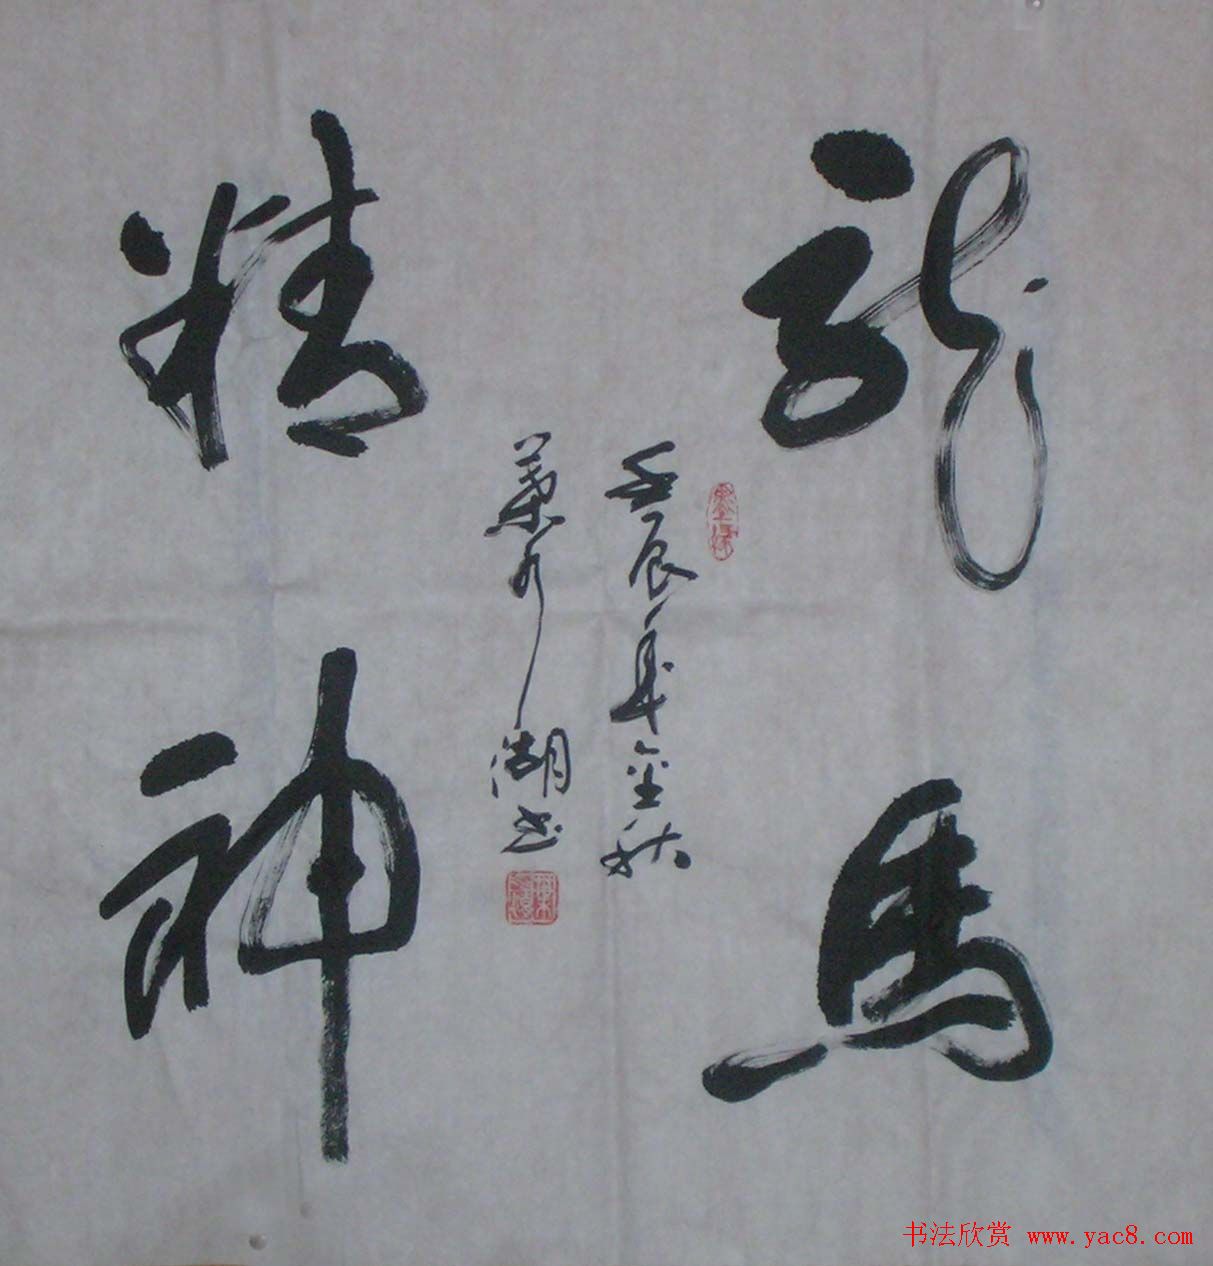 龍馬
精神
壬辰年金秋
葉水湖书
书法欣赏 www.yac8.com